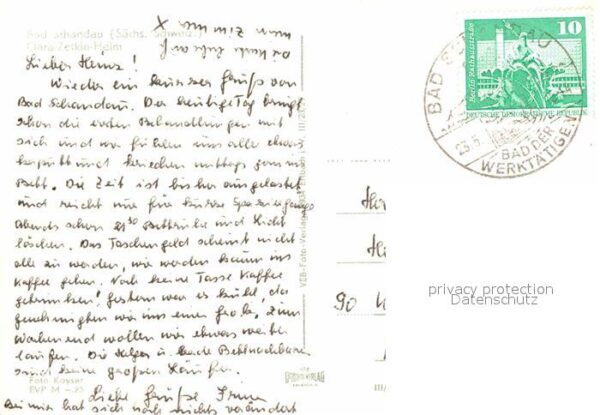 Bad Schandau (Sächs. Schweiz)
Clara-Zetkin-Heim
Lieber Heinz!
Wieder ein kurzer Gruß von
Bad Schandau. Der heutige Tag bringt
schon die ersten Behandlungen mit
sich und wir fühlen uns alle etwas
kaputt und kriechen mittags gern ins
Bett. Die Zeit ist bisher ausgelastet
und reicht nur für kurze Spaziergänge
Abends schon 21³⁰ Bettruhe und Licht
löschen. Das Taschengeld scheint nicht
alle zu werden, wir werden kaum ins
Kaffee gehen. Noch keine Tasse Kaffee
getrunken! Gestern war es kühl, da
genehmigten wir uns einen Grog. Zum
Wochenend wollen wir etwas weiter
laufen. Die Helga u. beide Bettnachbarn
sind keine großen Läufer.
Liebe Grüße
Bei mir hat sich noch nichts verändert
Foto Kayser
EVP M -.25
VEB-Foto-Verlag
III/26
90
10
Berlin, Rathausstraße
DEUTSCHE DEMOKRATISCHE REPUBLIK
BAD SCHANDAU
BAD DER
WERKTÄTIGEN
privacy protection
Datenschutz